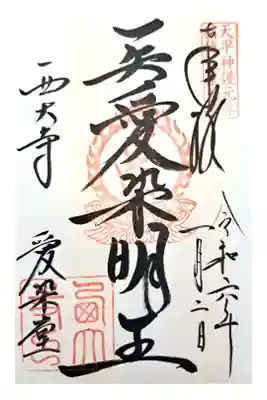 天平神護元
奉拝
令和六年
一月二日
愛染明王
西大寺
愛染堂